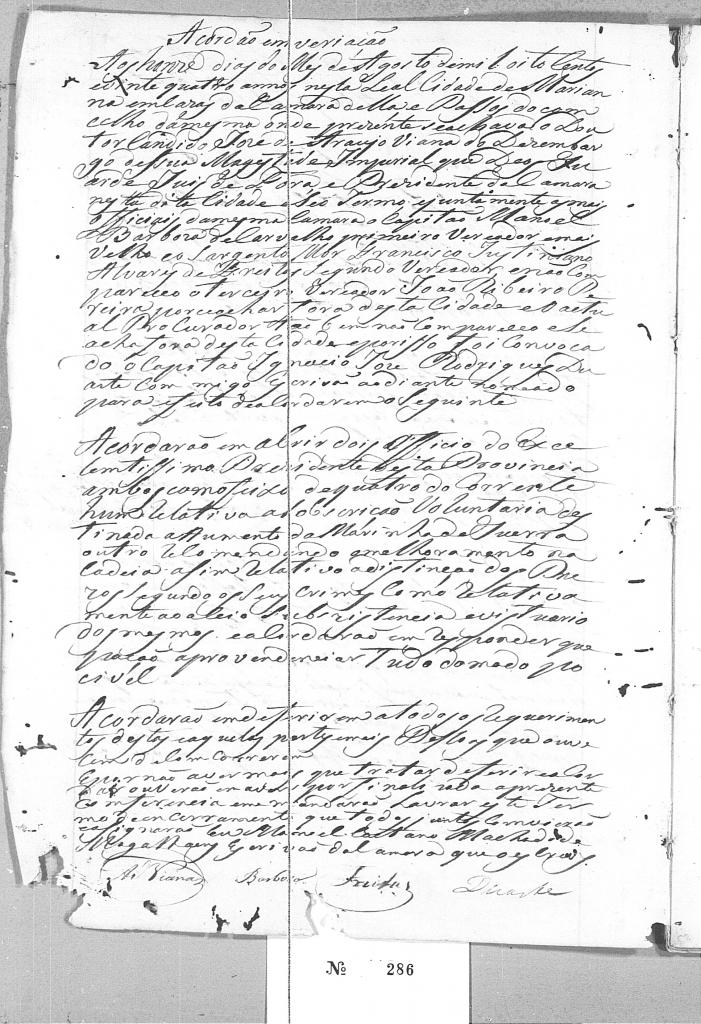 Acordão em veriação
Aos honze dias do Mes de Agosto de mil oito Centos
e vinte quatro annos nesta Leal Cidade de Marian
na em cazas da Camara della e Passos do con
celho da mesma onde prezente se achava o Dou
tor Candido Joze de Araujo Viana do Dezembar
go de Sua Magestade Imperial que Deos Gu
arde Juis de Fóra e Prezidente da Camara
nesta dita Cidade e Seo Termo e juntamente as mais
Officiais da mesma Camara o Capitão Manoel
Barboza de Carvalho primeiro Vereador mais
velho e o Sargento Mor Francisco Justiniano
Alvares de Freitas Segundo Vereador, e não Com
pareceo o terceiro Vereador João Ribeiro Pe
reira por se achar fora desta Cidade e o actu
al Procurador tão bem não Compareceo e Se
acha fora desta Cidade e por isso foi Convoca
do o Capitão Ignacio Joze Rodrigues Du
arte Com migo Escrivão ao diante nomeado
para efeito de acordarem o Seguinte
Acordarão em abrir dois Officio do Exce
lentissimo Prezidente desta Provincia
ambos com de quatro do Corrente
hum relativo a Subscrição Voluntaria des
tinada a Aumento da Marinha de Guerra
outro recomendando o melhoramento na
cadeia asim relativo a distinção dos Pre
zos segundo os Seus Crimes Como relativa
mente ao aceio Subzistencia e vistuario
dos mesmos e acordarão em responder que
pação aprovendenciar tudo do modo po
civel
Acordarão em deferirem a todos os requerimen
tos destes e aquelas partes mais que ouve
e por não aver mais que tratar deferir e acor
dar ouverão por finalizada a prezente
Conferencia e mandarão Lavrar este Ter
mo de encerramento que todos juntos Comigo
asignarão eu Manoel Caetano Machado de
Magalhaes Escrivão da Camara que o escrevi.
Ar.º Viana Barboza Freitas Duarte
Nº 286